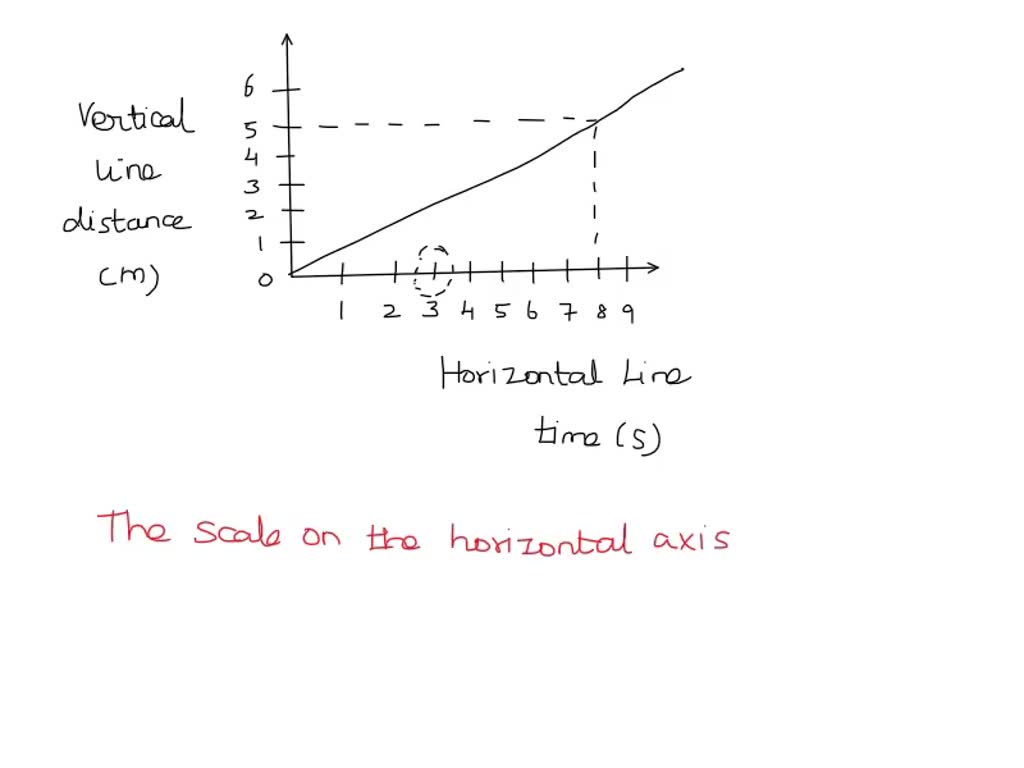 6
Vertical
5
4
Line
3
2
distance
1
(m)
0
1 2 3 4 5 6 7 8 9
Horizontal Line
time (s)
The scale on the horizontal axis